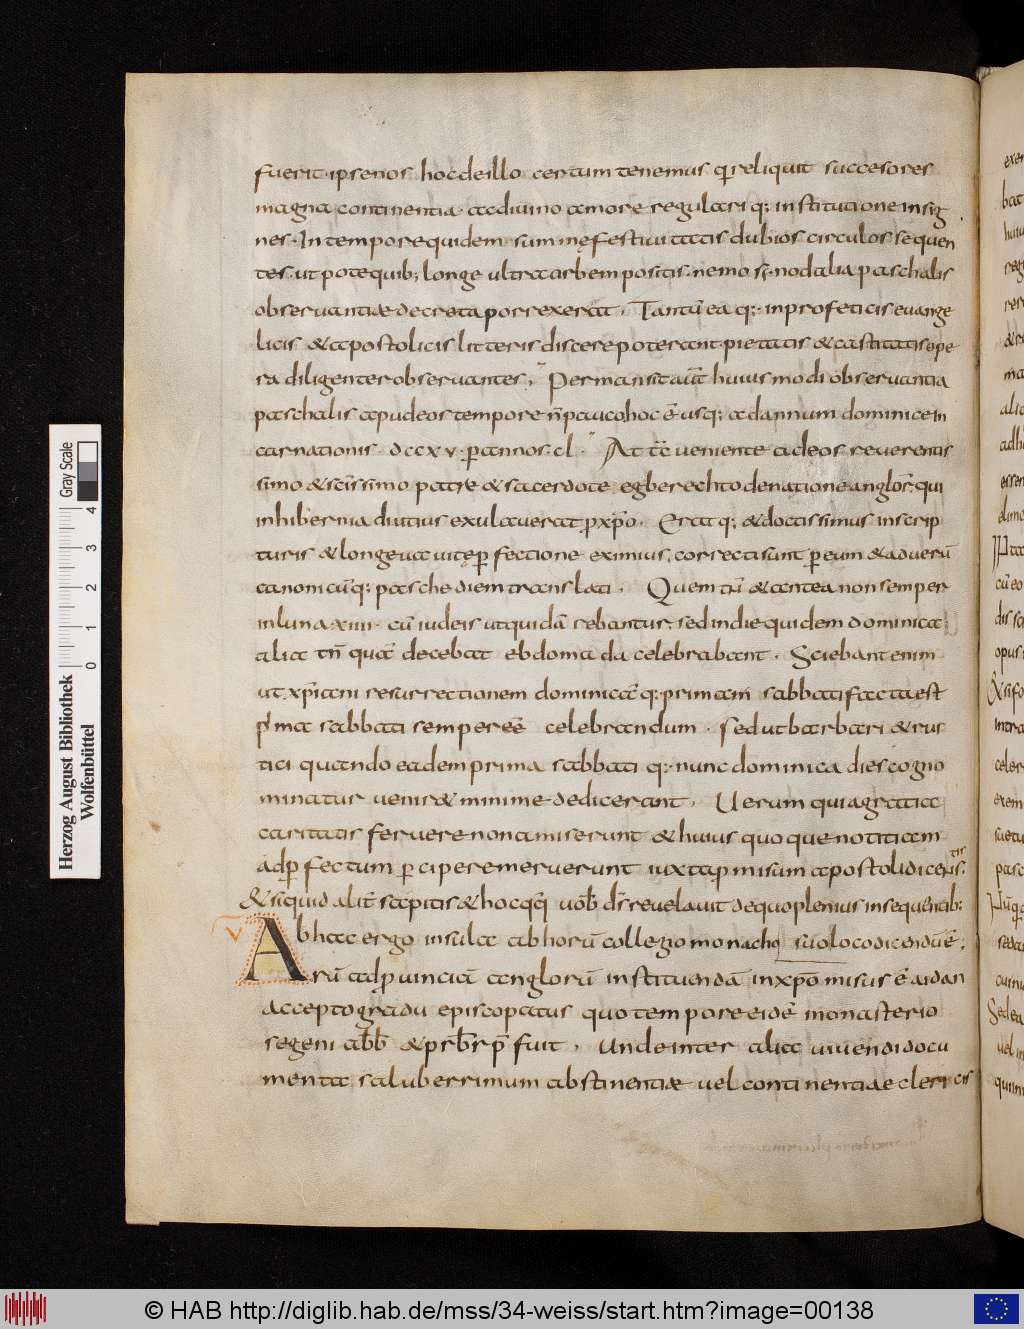 fuerit. ipse nos hoc de illo certum tenemus q̄ reliquit succesores
magna continentia. ac diuino amore regulari q; institutione insig
nes. In tempore quidem summę festiuitatis dubios circulos sequen
tes. ut pote quib; longe ultra arbem positis. nemo sinodalia paschalis
obseruantiæ decreta porrexerat. Tantū ea q; in profeticis euange
licis & apostolicis litteris discere poterant. pietatis & castitatis ope
ra diligenter obseruantes, Permansit aūt huiusmodi obseruantia
paschalis apud eos tempore n̄ pauco hoc ē usq; ad annum dominice in
carnationis. dccxv. p annos. cl. At tc̄ ueniente ad eos reuerentis
simo & sc̄issimo patre & sacerdote egberechto de natione anglor̄. qui
in hibernia diutius exulauerat p xp̄o. Erat q; & doctissimus in scrip
turis & longeua uitę pfectione eximius, correcti sunt p eum & ad uerū
canonicū q; pasche diem translati. Quem tn̄ & antea non semper
in luna xiiii. cū iudeis ut quidā rebantur, sed in die quidem dominica
alia tn̄ quā decebat ebdomada celebrabant. Sciebant enim
ut xp̄iani resurrectionem dominicā q; prima sabbati facta est
pma sabbati semper eē celebrandum. sed ut barbari & rus
tici quando eadem prima sabbati q; nunc dominica dies cogno
minatur uenir& minime dedicerant. Uerum qui a gratia
caritatis feruere non amiserunt & huius quoque notitiam
ad pfectum pcipere meruerunt iuxta pmisum apostoli dicentis.
& si quid alit̄ sapitis & hoc qq; uob̄ ds̄ reuelauit de quo plenius in sequentib;
V Ab hac ergo insula ab horū collegio monacho suo loco dicendū ē.
rū ad puinciā anglorū instituendā in xp̄o misus ē aidan
accepto gradu episcopatus quo tempore eidē monasterio
segeni abb̄ & prb̄r pfuit. Unde inter alia uiuendi docu
menta saluberrimum abstinentiæ uel continentiae clericis
Herzog August Bibliothek
Wolfenbüttel
Gray Scale
0 1 2 3 4
© HAB http://diglib.hab.de/mss/34-weiss/start.htm?image=00138